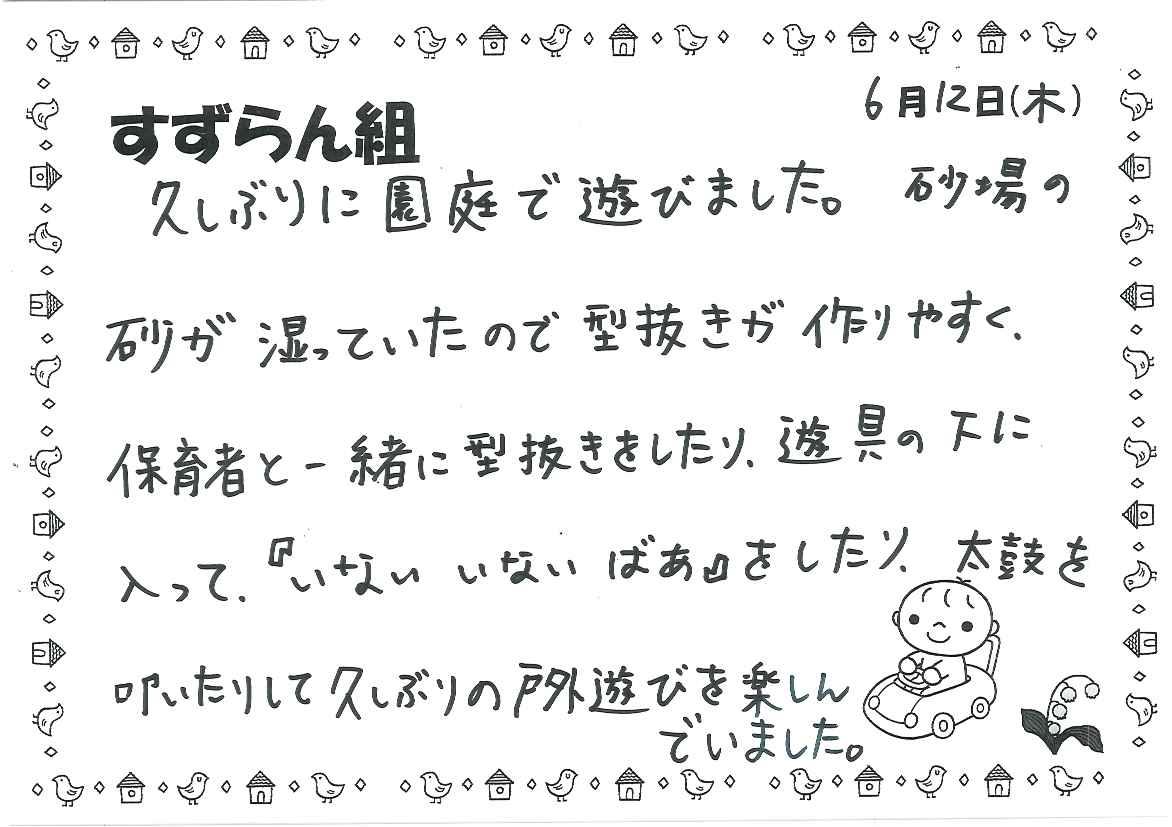 6月12日(木)
すずらん組
久しぶりに園庭で遊びました。 砂場の
砂が湿っていたので型抜きが作りやすく、
保育者と一緒に型抜きをしたり、遊具の下に
入って、『いない いない ばあ』をしたり、太鼓を
叩いたりして久しぶりの戸外遊びを楽しん
でいました。